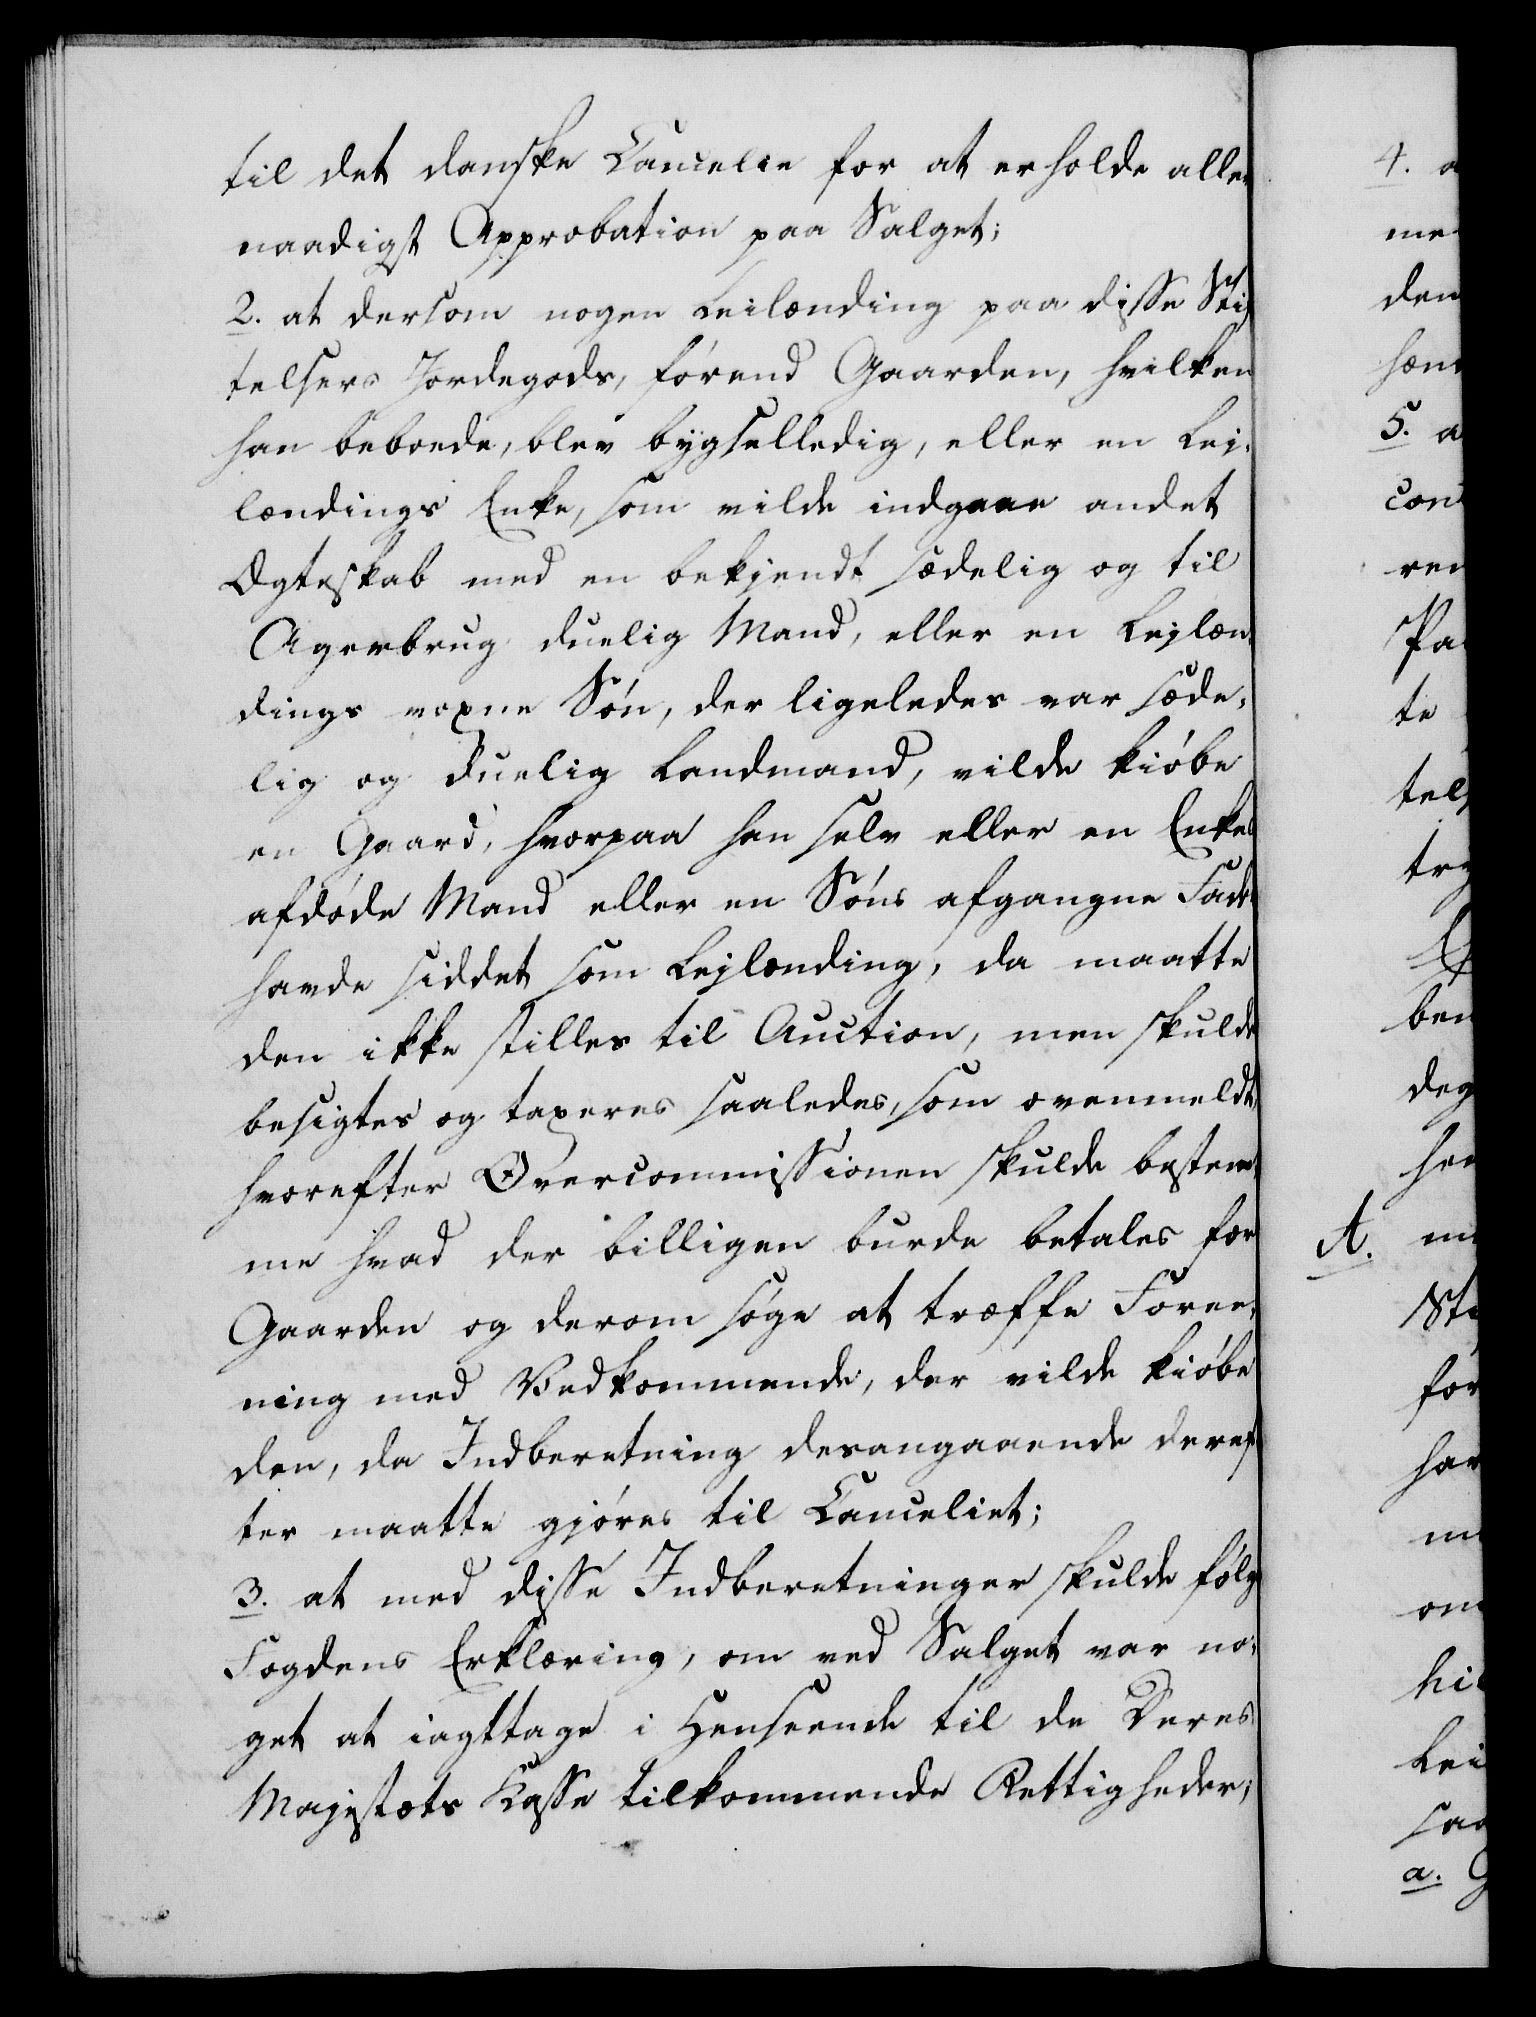 til det danske Cancelie for at erholde aller
naadigst Approbation paa Salget;
2. at dersom nogen Leilænding paa disse Stif
telsers Jordegods, førend Gaarden, hvilken
han beboede, blev bygselledig, eller en Lei-
lændings Enke, som vilde indgaae andet
Ægteskab med en bekjendt sædelig og til
Agerbrug duelig Mand, eller en Lejlæn-
dings voxne Søn, der ligeledes var sæde-
lig og duelig Landmand, vilde kiøbe
en Gaard, hvorpaa han selv eller en Enkes
afdøde Mand eller en Søns afgangne Fader
havde siddet som Lejlænding, da maatte
den ikke stilles til Auction, men skulde
besigtes og taxeres saaledes, som ovenmeldt,
hvorefter Overcommissionen skulde bestem
me hvad der billigen burde betales for
Gaarden og derom søge at træffe Foree-
ning med Vedkommende, der vilde kiøbe
den, da Indberetning desangaaende deref
ter maatte gjøres til Canceliet;
3. at med disse Indberetninger skulde følge
Fogdens Erklæring, om ved Salget var no-
get at iagttage i Henseende til de Deres
Majestæts Kasse tilkommende Rettigheder;
4. a
me
den
5. a
ren
te
A.
for
a.